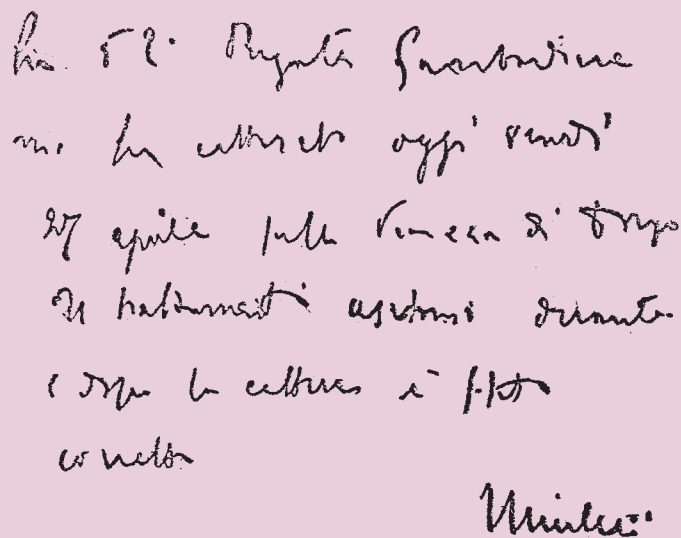 La 52ª Brigata Garibaldina
mi ha catturato oggi venerdì
27 aprile sulla Piazza di Dongo
Il trattamento usatomi durante
e dopo la cattura è stato
corretto
Mussolini